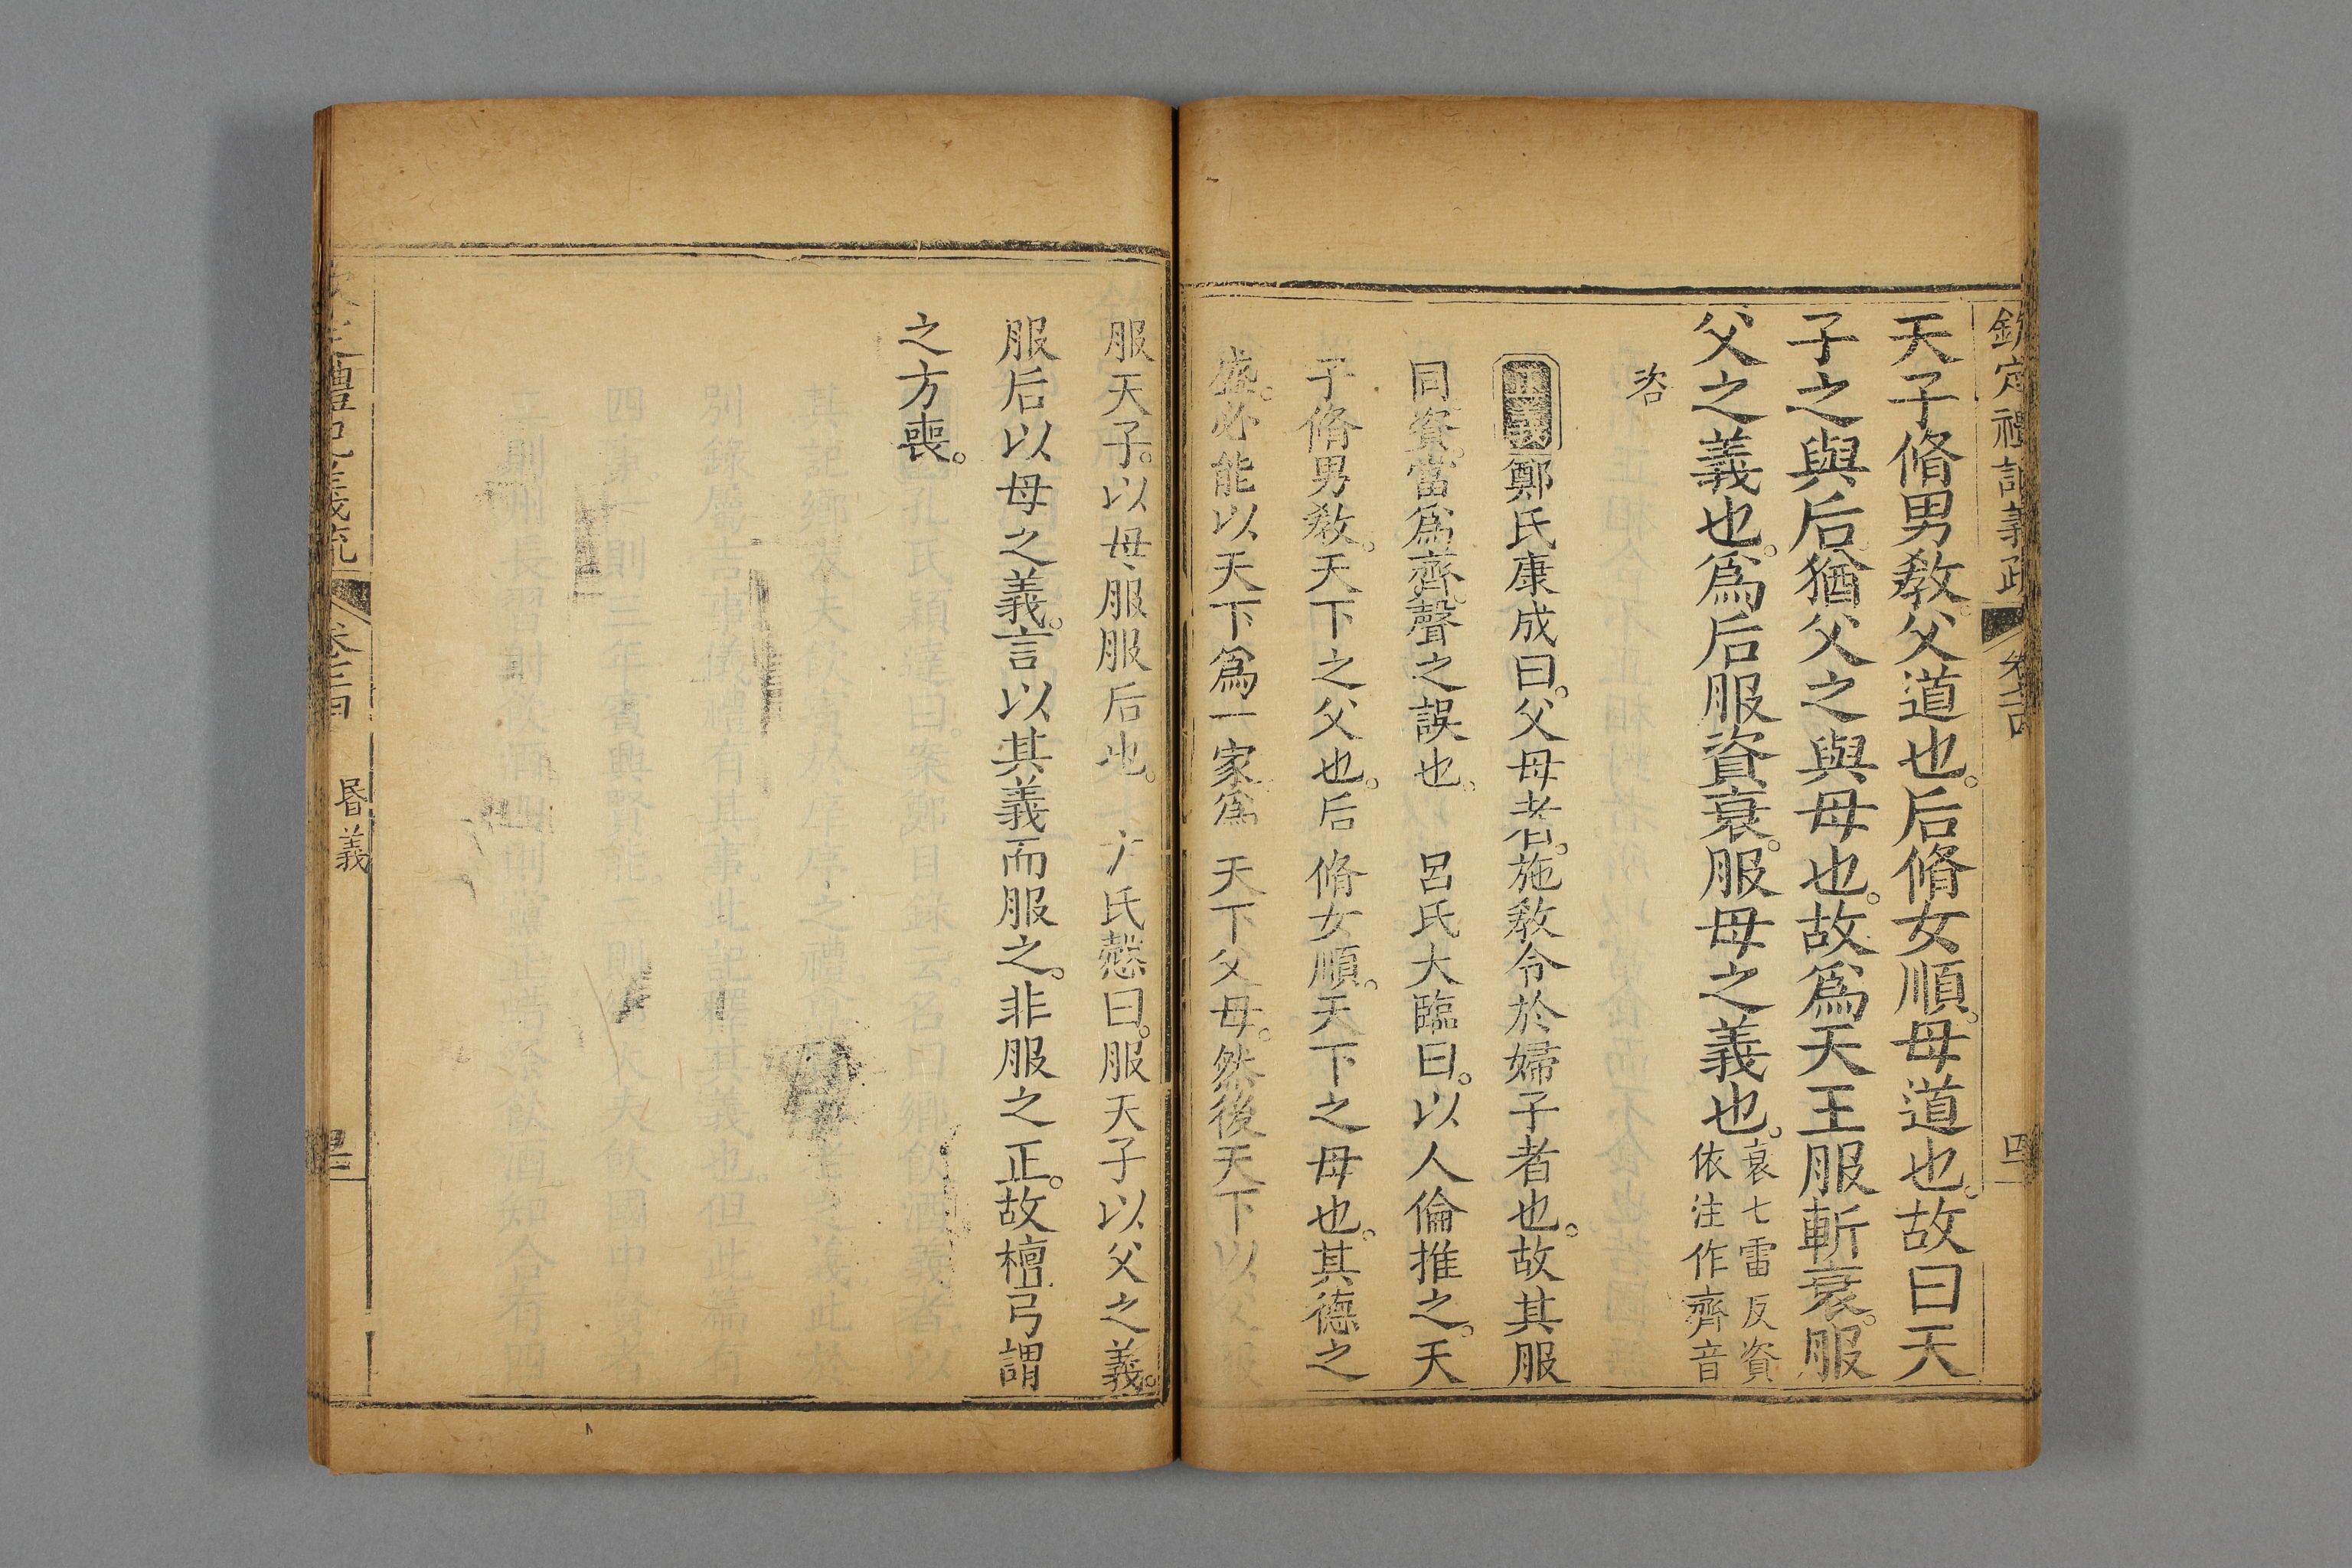 欽定禮記義疏
天子脩男敎。父道也。后脩女順。母道也。故曰天
子之與后猶父之與母也。故爲天王服斬衰。服
父之義也。爲后服資衰。服母之義也。
衰七雷反資
依注作齊音
咨
正義鄭氏康成曰。父母者。施敎令於婦子者也。故其服
同資。當爲齊。聲之誤也。 呂氏大臨曰。以人倫推之。天
子脩男敎。天下之父也。后脩女順。天下之母也。其德之
盛。必能以天下爲一家爲天下父母。然後天下以父
服天子。以母服服后也。 方氏慤曰。服天子以父之義。
服后以母之義。言以其義而服之。非服之正。故檀弓謂
之方喪。
昬義